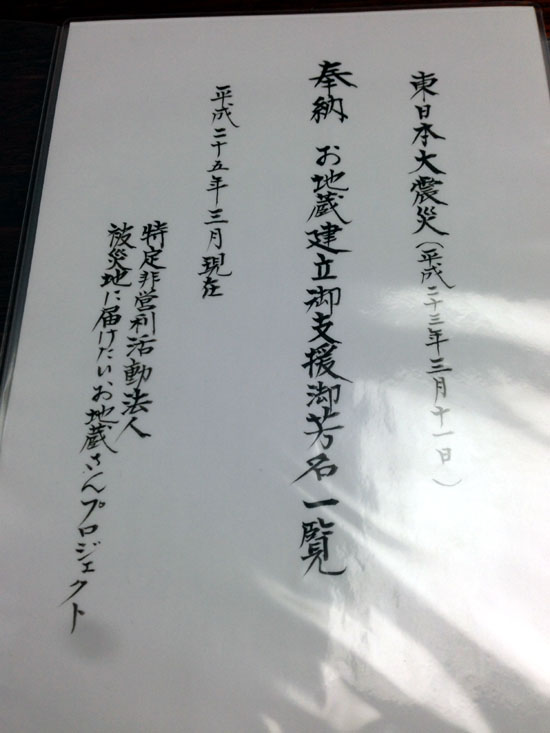 東日本大震災（平成二十三年三月十一日）
奉納 お地蔵建立御支援御芳名一覧
平成二十五年三月現在
特定非営利活動法人
被災地に届けたいお地蔵さんプロジェクト